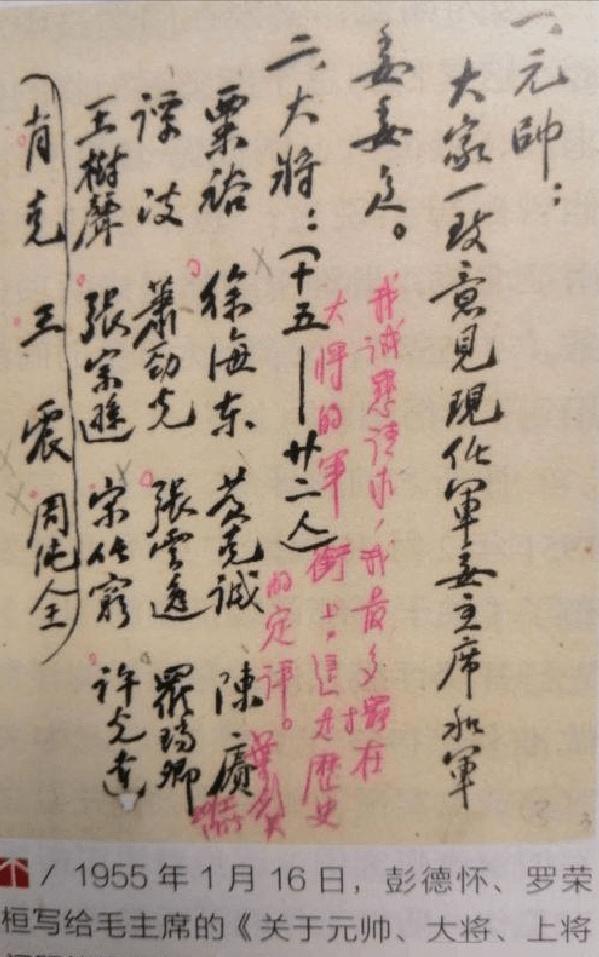 一、元帥：
大家一致意見現任軍委主席和軍
委委員。
我诚恳请求，我最多在
大將的軍衔上。這才歷史
的定评。
二、大將：（十五——廿二人）
粟裕 徐海东 黄克诚 陳賡
谭政 蕭劲光 張雲逸 羅瑞卿
王樹聲 張宗遜 宋任窮 许光達
（肖克 王震 周纯全）
/ 1955 年 1 月 16 日，彭德怀、罗荣
桓写给毛主席的《关于元帅、大将、上将